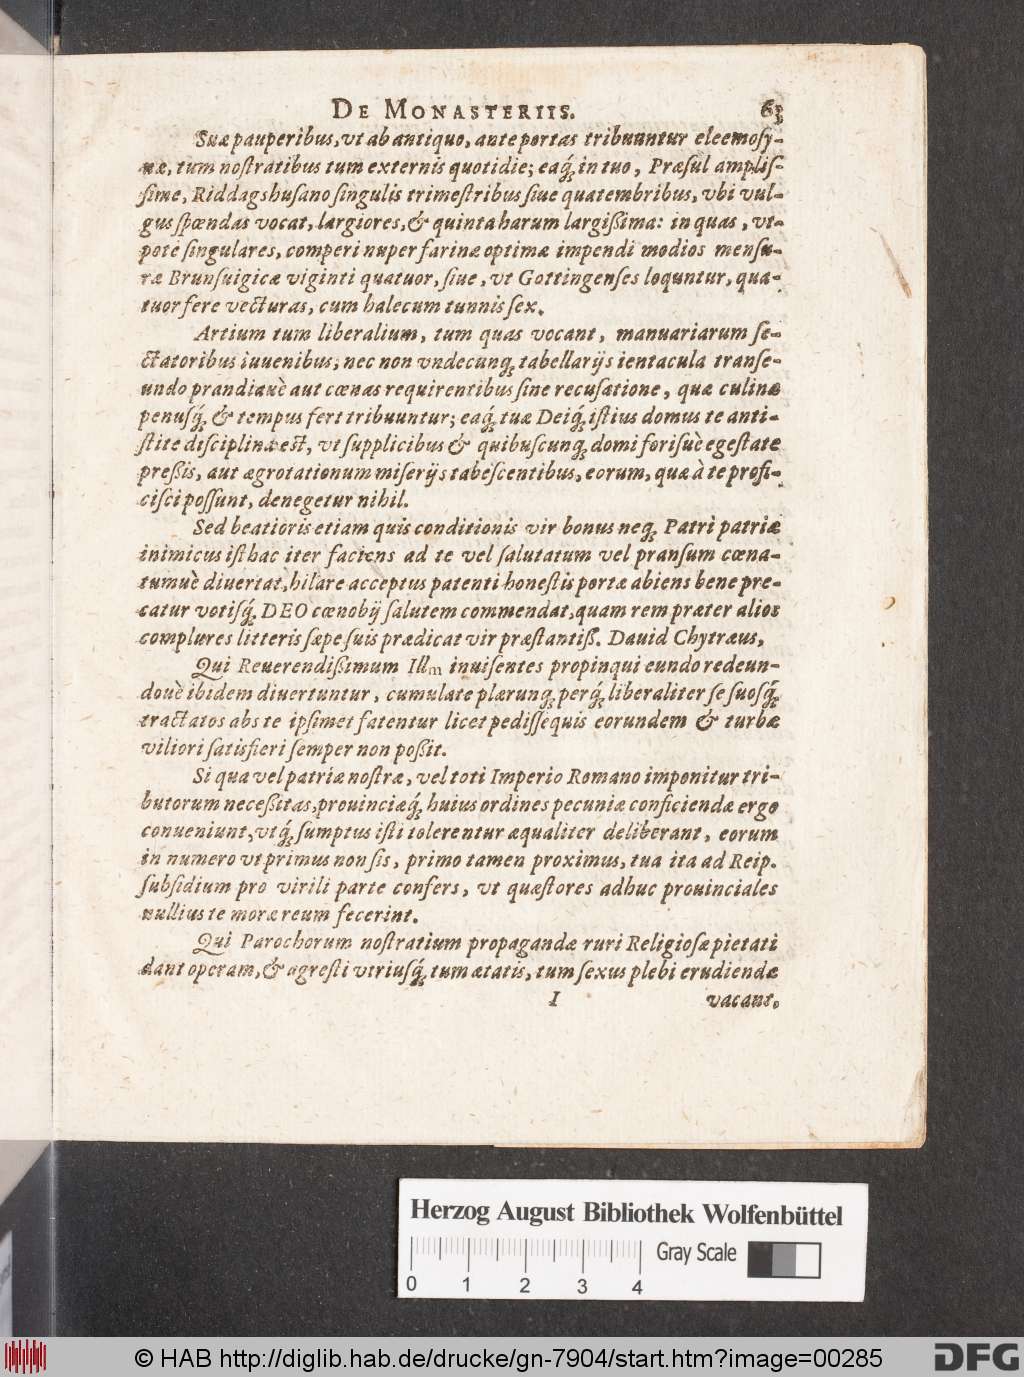 DE MONASTERIIS. 63
Suæ pauperibus, vt ab antiquo, ante portas tribuuntur eleemoſy-
næ, tum noſtratibus tum externis quotidie; eaq́; in tuo, Præſul ampliſ-
ſime, Riddagshuſano ſingulis trimeſtribus ſiue quatembribus, vbi vul-
gus ſpœndas vocat, largiores, & quinta harum largißima: in quas, vt-
pote ſingulares, comperi nuper farinæ optimæ impendi modios menſu-
ræ Brunſuigicæ viginti quatuor, ſiue, vt Gottingenſes loquntur, qua-
tuor fere vecturas, cum halecum tunnis ſex.
Artium tum liberalium, tum quas vocant, manuariarum ſe-
ctatoribus iuuenibus; nec non vndecunq; tabellarijs ientacula tranſe-
undo prandiauè aut cœnas requirentibus ſine recuſatione, quæ culinæ
penusq́; & tempus fert tribuuntur; eaq́; tuæ Deiq́; iſtius domus te anti-
ſtite diſciplina eſt, vt ſupplicibus & quibuſcunq; domi foriſuè egeſtate
preßis, aut ægrotationum miſerijs tabeſcentibus, eorum, quæ à te profi-
ciſci poſſunt, denegetur nihil.
Sed beatioris etiam quis conditionis vir bonus neq; Patri patriæ
inimicus iſthac iter faciens ad te vel ſalutatum vel pranſum cœna-
tumuè diuertat, hilare acceptus patenti honeſtis porta abiens bene pre-
catur votiſq́; DEO cœnobij ſalutem commendat, quam rem præter alios
complures litteris ſæpe ſuis prædicat vir præſtantiß. Dauid Chytræus,
Qui Reuerendißimum Illm inuiſentes propinqui eundo redeun-
douè ibidem diuertuntur, cumulate plærunq; perq́; liberaliter ſe ſuoſq́;
tractatos abs te ipſimet fatentur licet pediſſequis eorundem & turbæ
viliori ſatisfieri ſemper non poßit.
Si qua vel patriæ noſtræ, vel toti Imperio Romano imponitur tri-
butorum neceßitas, prouinciæq́; huius ordines pecuniæ conficiendæ ergo
conueniunt, vtq́; ſumptus iſti tolerentur æqualiter deliberant, eorum
in numero vt primus non ſis, primo tamen proximus, tua ita ad Reip.
ſubſidium pro virili parte confers, vt quæſtores adhuc prouinciales
nullius te moræ reum fecerint.
Qui Parochorum noſtratium propagandæ ruri Religioſæ pietati
dant operam, & agreſti vtriuſq́; tum ætatis, tum ſexus plebi erudiendæ
I vacant.
Herzog August Bibliothek Wolfenbüttel
Gray Scale
0 1 2 3 4
© HAB http://diglib.hab.de/drucke/gn-7904/start.htm?image=00285
DFG